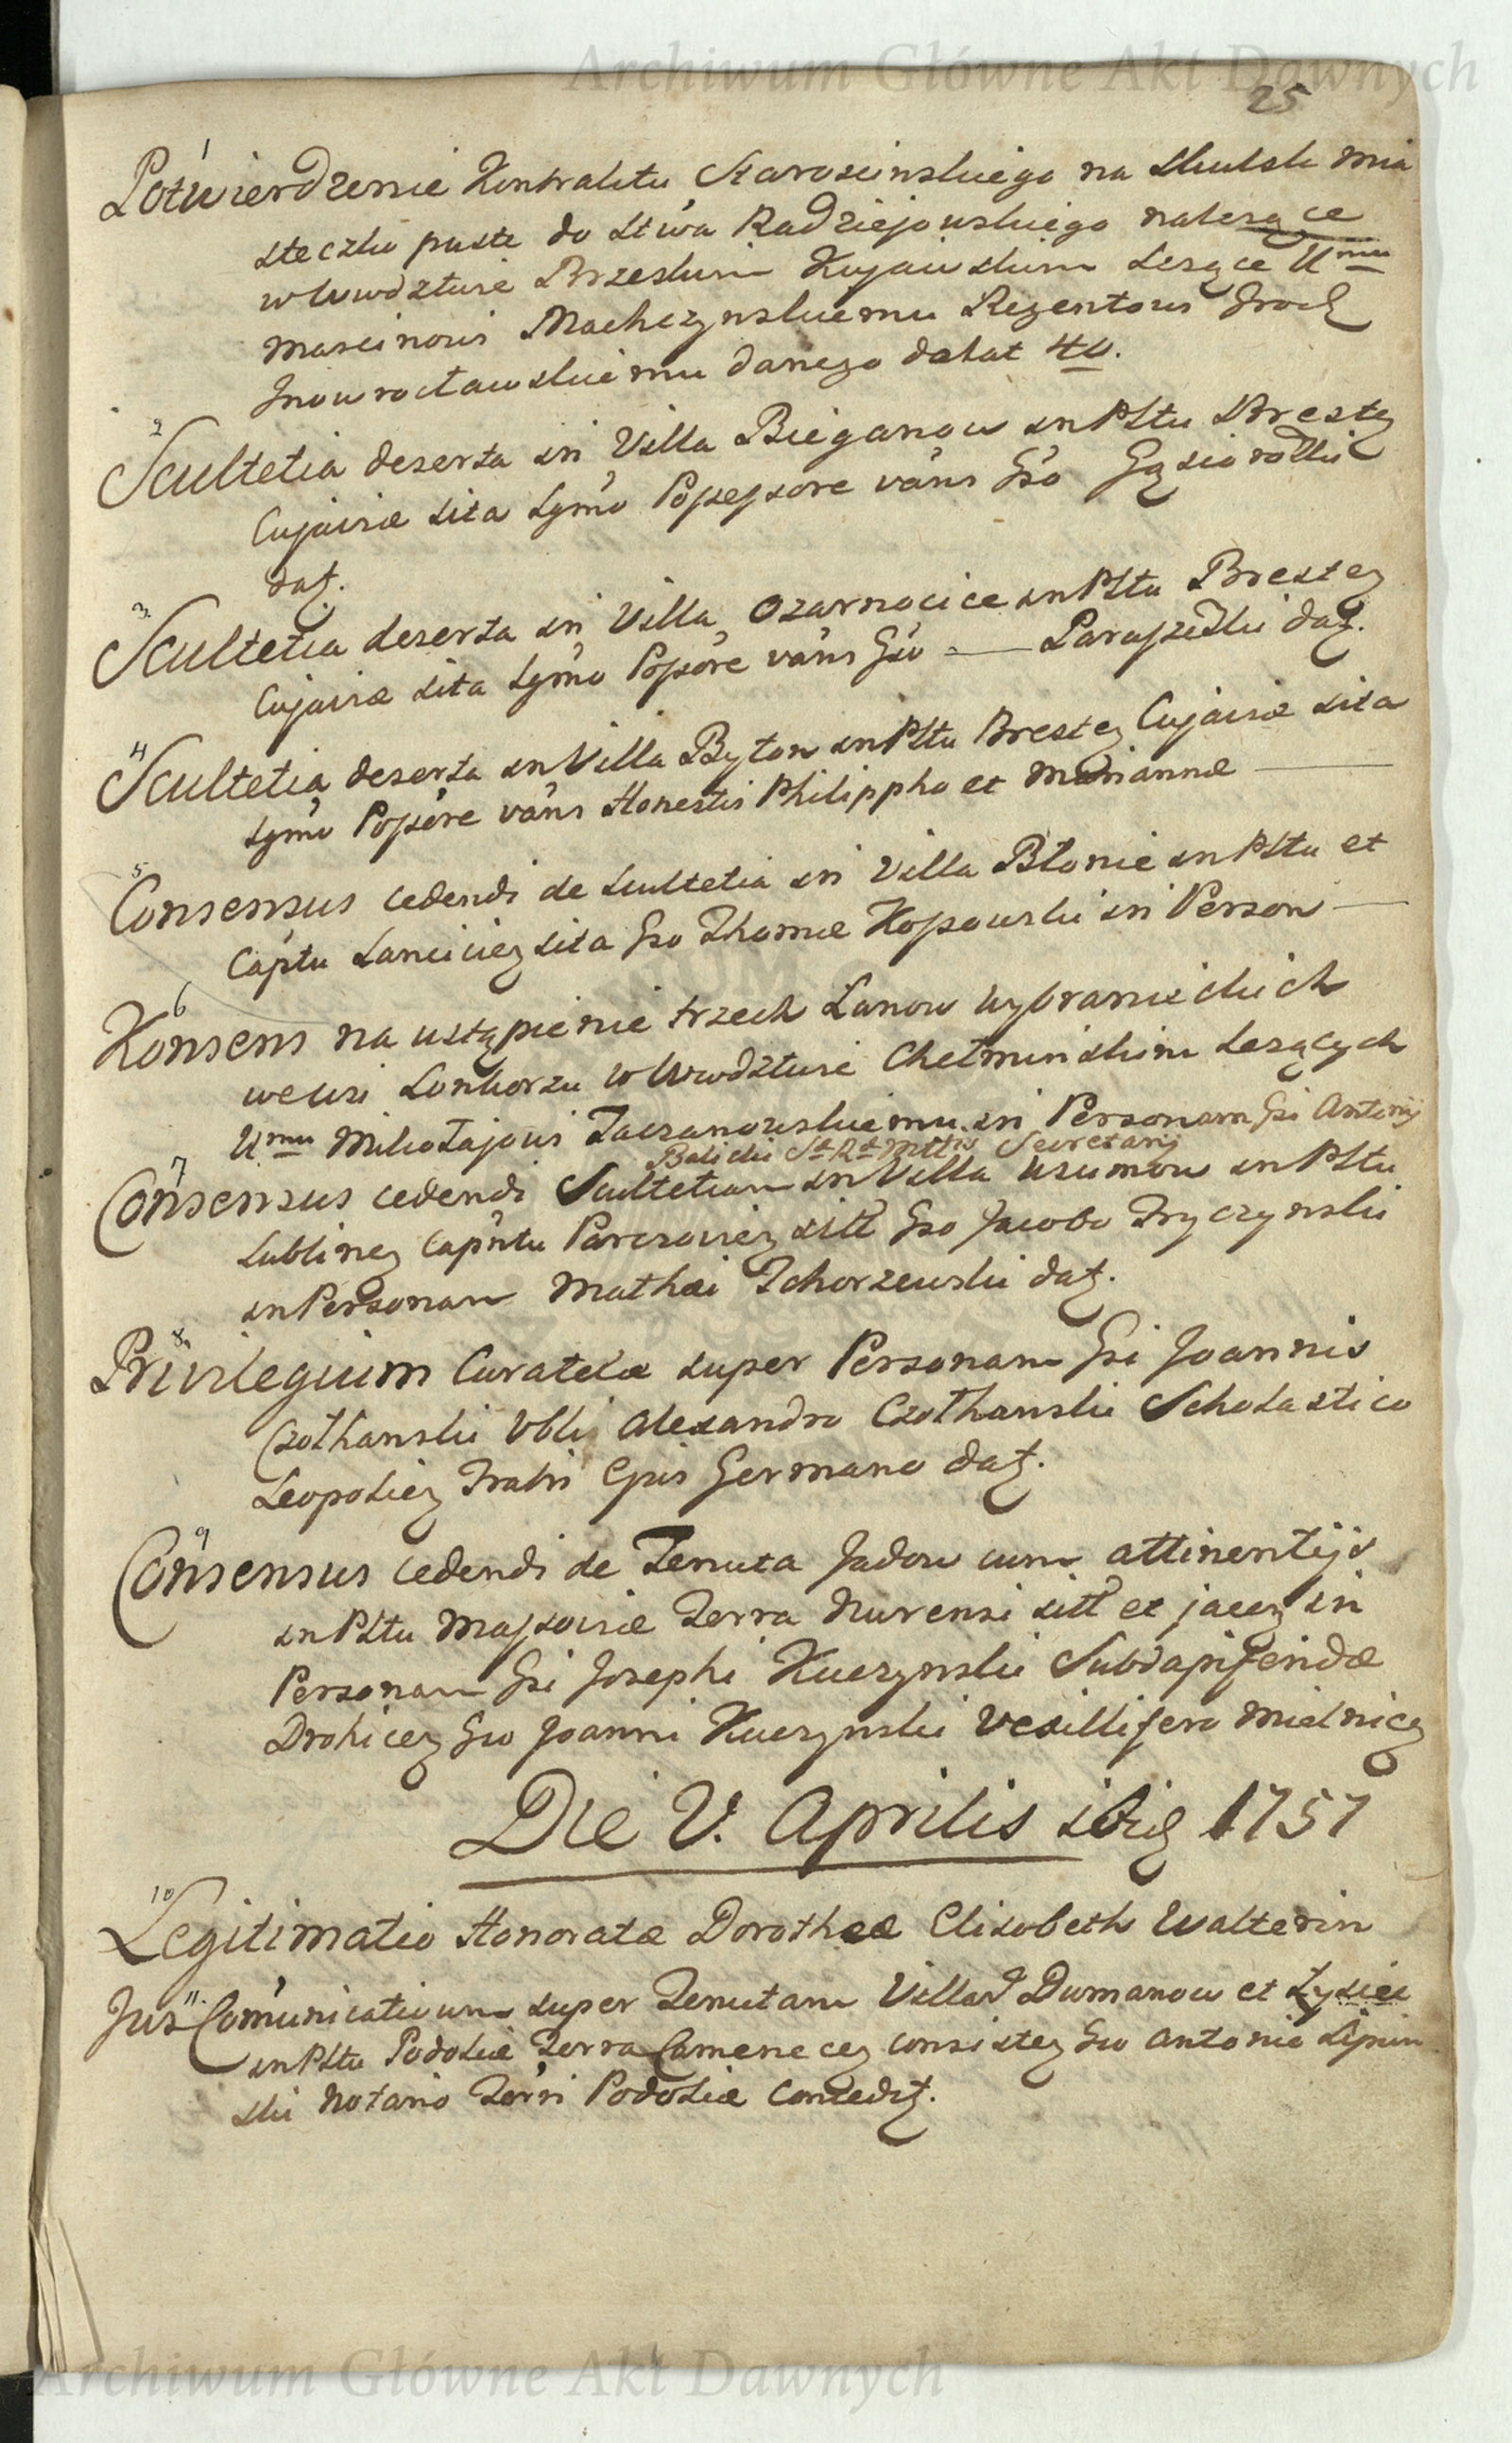 Archiwum Główne Akt Dawnych
25
1
Potwierdzenie Kontraktu Staroscinskiego na Skulsk mia
steczko puste do Stwa Radziejowskiego nalezące
w Wwdztwie Brzeskim Kujawskim Lezące Umu
Marcinowi Machczynskiemu Regentowi Grodz
Inowrocławskiemu danego da lat 40.
2
Scultetia deserta in Villa Bieganow in Pltu Brestez
Cujaviæ sita Lgmo Possessore váns Gso Gąsiorowski
datz.
3
Scultetia deserta in Villa Ozarnocice in Pltu Brestez
Cujaviæ sita Lgmo Possóre váns Gso — datz.
4
Scultetia deserta in Villa Byton in Pltu Brestez Cujaviæ sita
Lgmo Possóre váns Honestis Philippho et Mariannæ —
5
Consensus cedendi de Scultetia in Villa Błonie in Pltu et
Captu Lancicien sita Gso Thomæ Kossowski in Person —
6
Konsens na ustąpienie trzech Łanow Wybranieckich
we wsi Lonkorzu w Wwdztwie Chełminskim Lezących
Umu Mikołajowi Zaczanowskiemu in Personam Gsi Antonij
Balicki S. R. Mttis Secretarij
7
Consensus cedendi Scultetiam in Villa Uzumow in Pltu
Lublinez Capntu Parczoviez sitt Gso Jacobo Tryczynski
in Personam Mathæi Tchorzewski datz.
8
Privilegium Curatelæ super Personam Gsi Joannis
Czolhanski Vbli Alexandro Czolhanski Scholastico
Leopoliez Fratri Ejus Germano datz.
9
Consensus cedendi de Tenuta Jadow cum attinentijs
in Pltu Massoviæ Terra Nurensi sitt et jacez in
Personam Gsi Josephi Kuczynski Subdapiferidæ
Drohicez Gso Joanni Kuczynski Vexillifero Mielnicez
Die V. Aprilis ibid 1757
10
Legitimatio Honoratæ Dorotheæ Elisabeth Walterin
11.
Jus Comunicativum super Tenutam Villar Dumanow et Lysiec
in Pltu Podoliæ Terra Camenecez consistez Gso Antonio Lipin
ski Notario Terri Podoliæ Concedtz.
Archiwum Główne Akt Dawnych